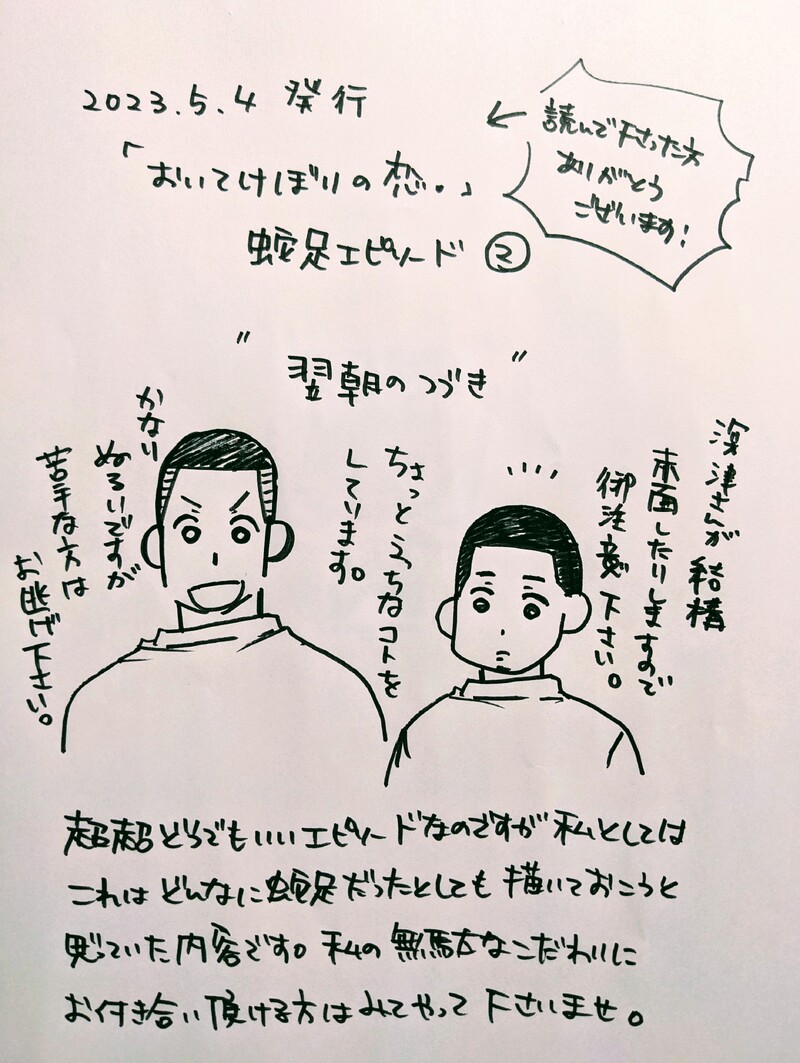 2023.5.4 発行
「おいてけぼりの恋。」
蛇足エピソード②
読んで下さった方
ありがとう
ございます!
"翌朝のつづき"
深津さんが結構
赤面したりしますので
御注意下さい。
ちょっとえっちなコトを
しています。
かなり
ぬるいですが
苦手な方は
お逃げ下さい。
超超どうでもいいエピソードなのですが私としては
これはどんなに蛇足だったとしても描いておこうと
思っていた内容です。私の無駄なこだわりに
お付き合い頂ける方はみてやって下さいませ。